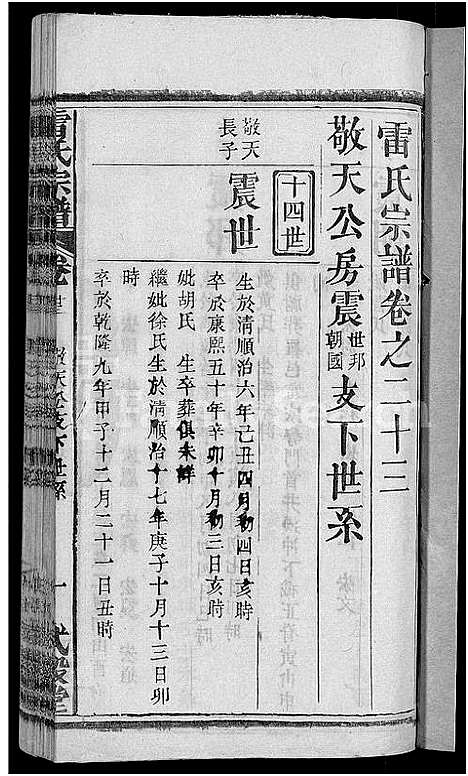 雷氏宗譜卷之二十三
敬天公房震世邦朝國支下世系
十四世
敬天長子
震世
生於清順治六年己丑四月初四日亥時
卒於康熙五十年辛卯十月初三日亥時
妣胡氏 生卒葬俱未詳
繼妣徐氏生於清順治十七年庚子十月十三日卯
時
卒於乾隆九年甲子十二月二十一日丑時
雷氏宗譜
卷廿三
敬天公支下世系
一